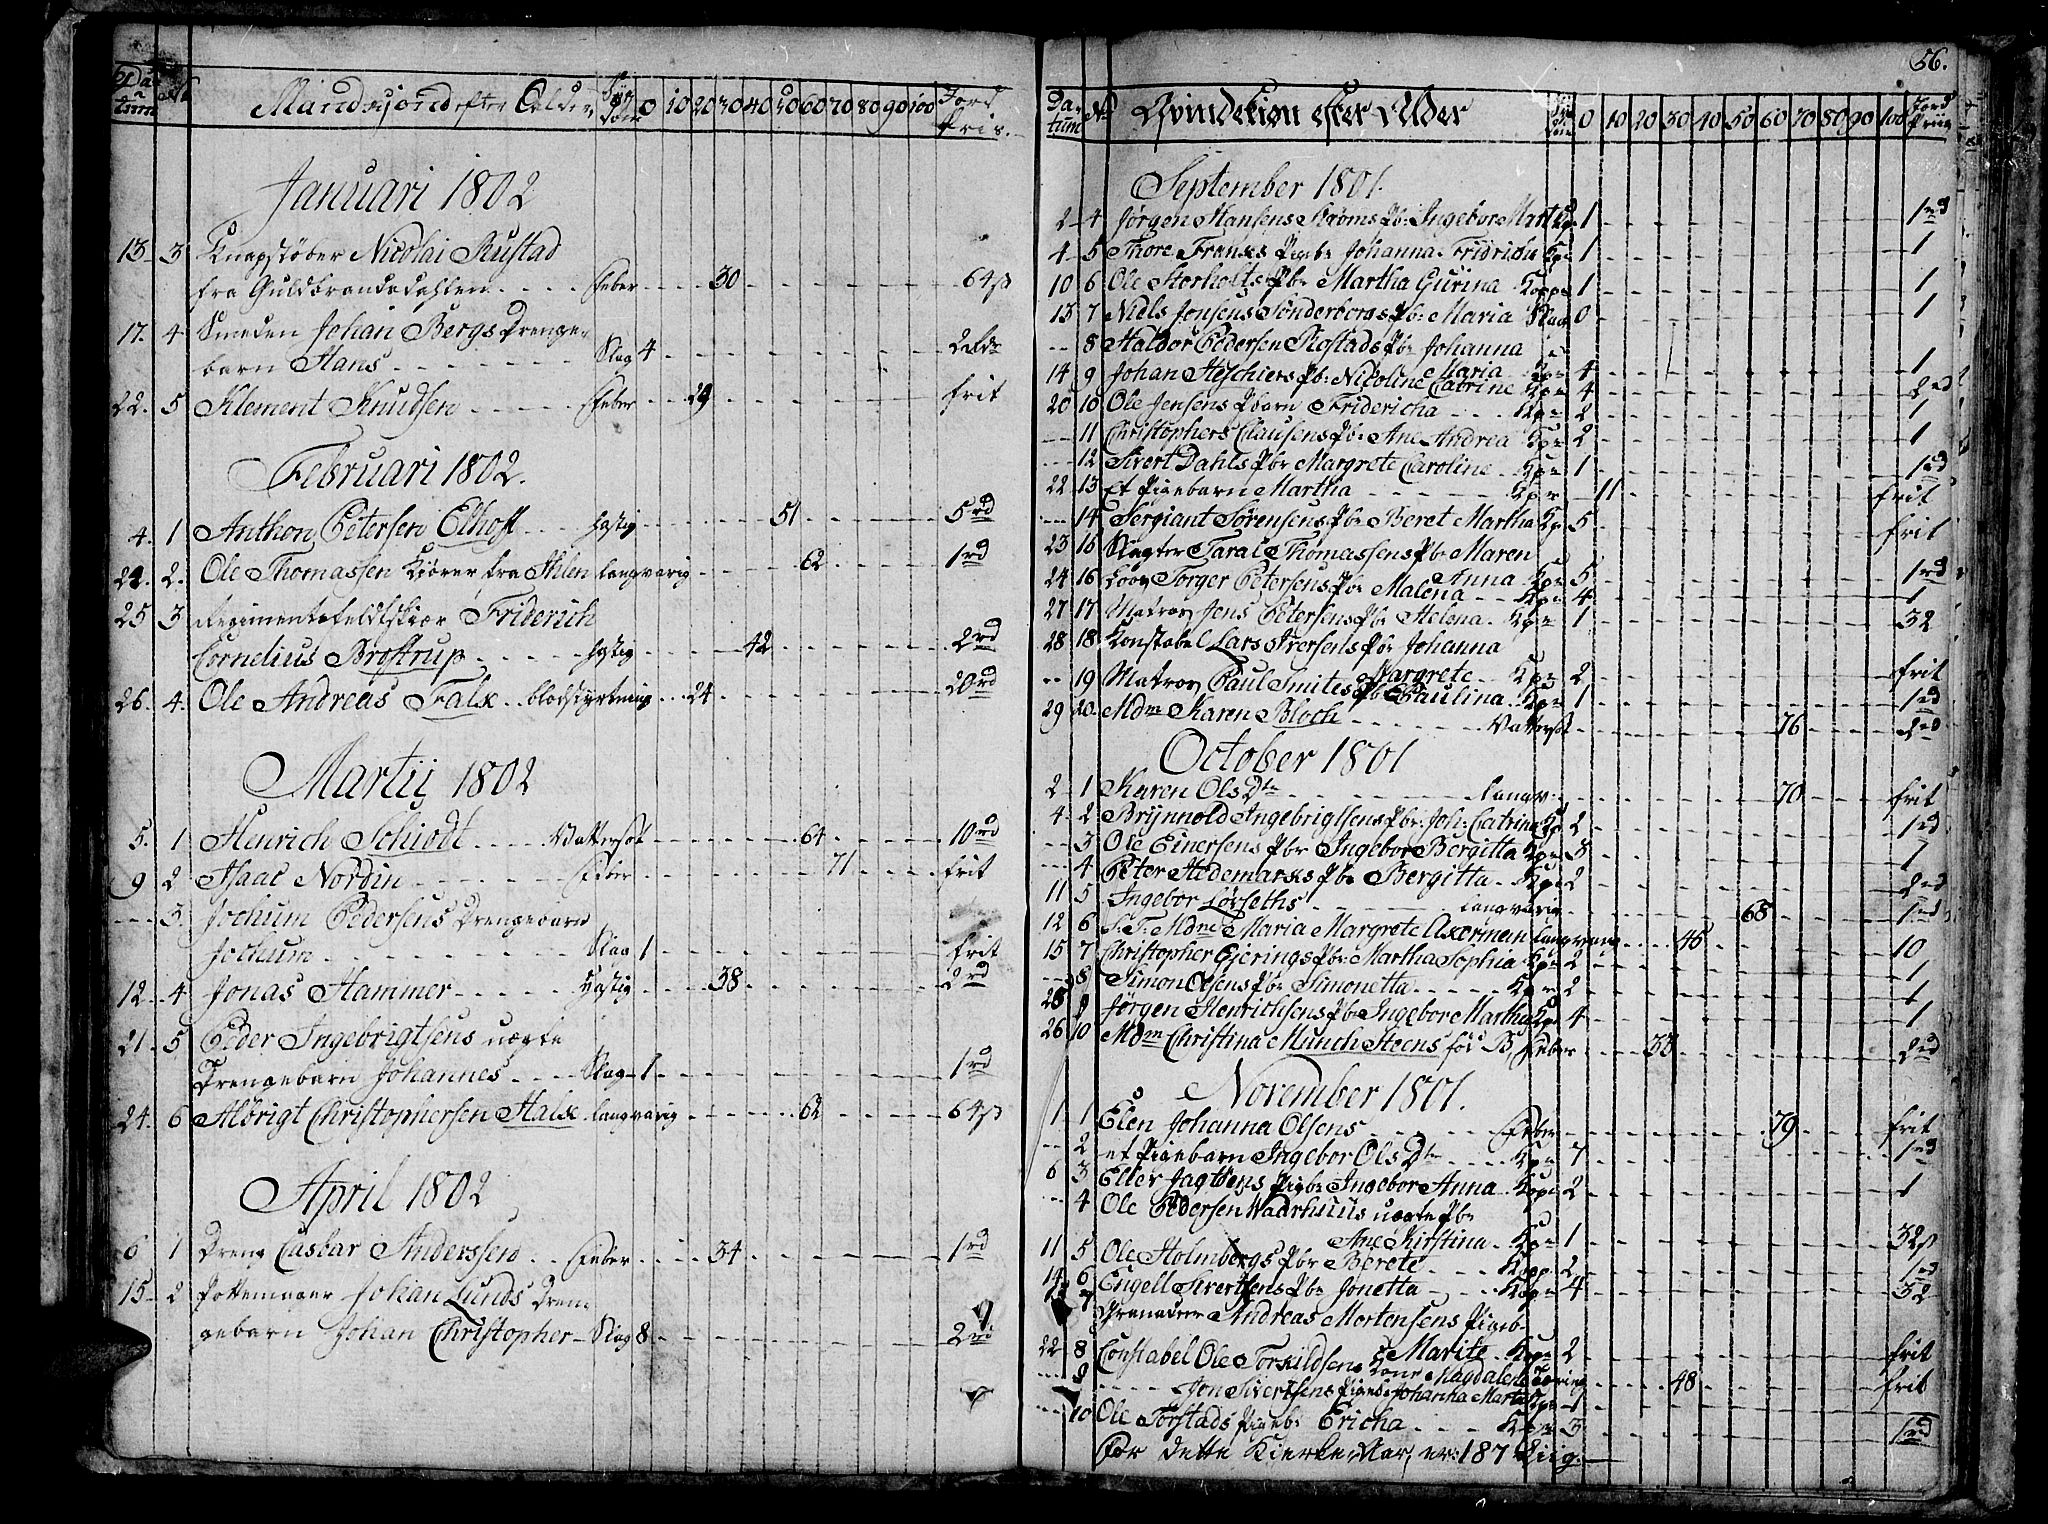 Mandkjønd efter Ælde 0 10 20 30 40 50 60 70 80 90 100
Januari 1802
13 3 Knapstøber Nicolai Rustad
fra Guldbrandsdahlen Feber 30 64
17. 4 Smeden Johan Bergs Drenge-
barn Hans Slag 4
22. 5 Klement Knudsen Feber 29 frit
Februari 1802.
4. 1 Anthon Petersen Elhoft hastig 51 5 rd
24. 2. Ole Thomassen Kiører fra Ihlen langvarig 62 1 rd
25 3 Regimentsfeldtskiær Friderich
Cornelius Brostrup hastig 42 2 rd
26. 4. Ole Andreas Falk blodstyrtning 24 20 rd
Martij 1802
5. 1 Henrich Schiødt Vattersot 64 10 rd
9 2 Isaac Nordin Feber 71 frit
3. Jochum Pedersens Drengebarn
Jochum Slag 1 frit
12. 4 Jonas Hammer hastig 38 2 rd
21. 5 Peder Ingebrigtsens uægte
Drengebarn Johannes Slag 1 1 rd
24. 6 Albrigt Christophersen Halse langvarig 62 64
April 1802
6 1 Dreng Casbar Anderssen Feber 34 1 rd
15 2 Pottemager Johan Lunds Dren-
gebarn Johan Christopher Slag 8 2 rd
56.
Datum No Qvindekion efter Alder 0 10 20 30 40 50 60 70 80 90 100
September 1801.
2 4 Jørgen Hansens Strøms Pb: Ingebor Mart Kp 1 1 rd
4 5 Thore Franks Pigeb: Johanna Fridricha Kp 1 1
10 6 Ole Storholts Pb: Martha Gurina Kopp 1 1
13 7 Niels Jonsens Sønderborgs Pb: Maria Slag 0 1
8 Haldor Pedersen Rostads Pb: Johanna
Maria Kp 4 1
14 9 Johan Heschiers Pb: Nicoline Catrine Kp 4 2 rd
20 10 Ole Jensens Pbarn Fridericha Kp 2 1
11 Christophers Clausens Pb: Ane Andrea Kp 2 1
12 Sivert Dahls Pb: Margrete Caroline Kp 1 1 rd
22 13 Et Pigebarn Martha Kp 11 frit
14 Sergiant Sørensens Pb: Beret Martha Kp 5 frit
23 15 Slagter Taral Thomassens Pb: Maren
Anna Kp 5 1 rd
24 16 Torger Petersens Pb: Malena Kp 4 1
27 17 Matros Jens Petersens Pb: Helena Kp 1 32
28 18 Konstabel Lars Iversens Pb: Johanna
Margrete Kp 2 frit
19 Matros Paul Smites Pb: Paulina Kp 1 1 rd
29 20. Mdm Karen Bloch Vattersot 76 2 rd
October 1801
2 1 Karen Ols Dtr langv. 70 frit
4 2 Brynnold Ingebrigtsens Pb: Joh: Catrina Kp 2 1 rd
3 Ole Einersens Pb: Ingebor Bergitta Kp 3 1
4 Peter Hedemarks Pb: Bergitta Kp 2 2 rd
11 5 Ingebor Lørseths langvarig 68 1 rd
12 6 S. T. Mdme Maria Margrete Akerman langvarig 46 10
15 7 Christopher Gjerings Pb: Martha Sophia Kp 2 1
8 Simon Olsens Pb: Simonetta Kp 2 1
25 9 Jørgen Henrichsens Pb: Ingebor Martha Kp 4 1
26 10 Mdm Christina Munch Steens fød B. Feber 33 2 rd
November 1801.
1 1 Elen Johanna Olsens Feber 79 frit
2 et Pigebarn Ingebor Ols Dtr Kp 7 1 rd
6 3 Eller Jagtøens Pigeb: Ingebor Anna Kop 2 1
4 Ole Pedersen Wadrhuus uægte Pb:
Ane Kirstina Kp 1 32
11 5 Ole Holmbergs Pb: Berete Kopp 2 1 rd
14 6 Engell Sivertsens Pb: Jonetta Kop 4 32
7 Granadeer Andreas Mortensens Pigeb:
Marite Kop 2 frit
22 8 Constabel Ole Torkildsens Kone Magdalene Tæring 48 frit
9 Jon Sivertsens Pigeb: Johanna Marta Kp 1
10 Ole Torstads Pigeb: Ericha Kp 3 1 rd
For dette Kierke Aar, er: 187 Liig.